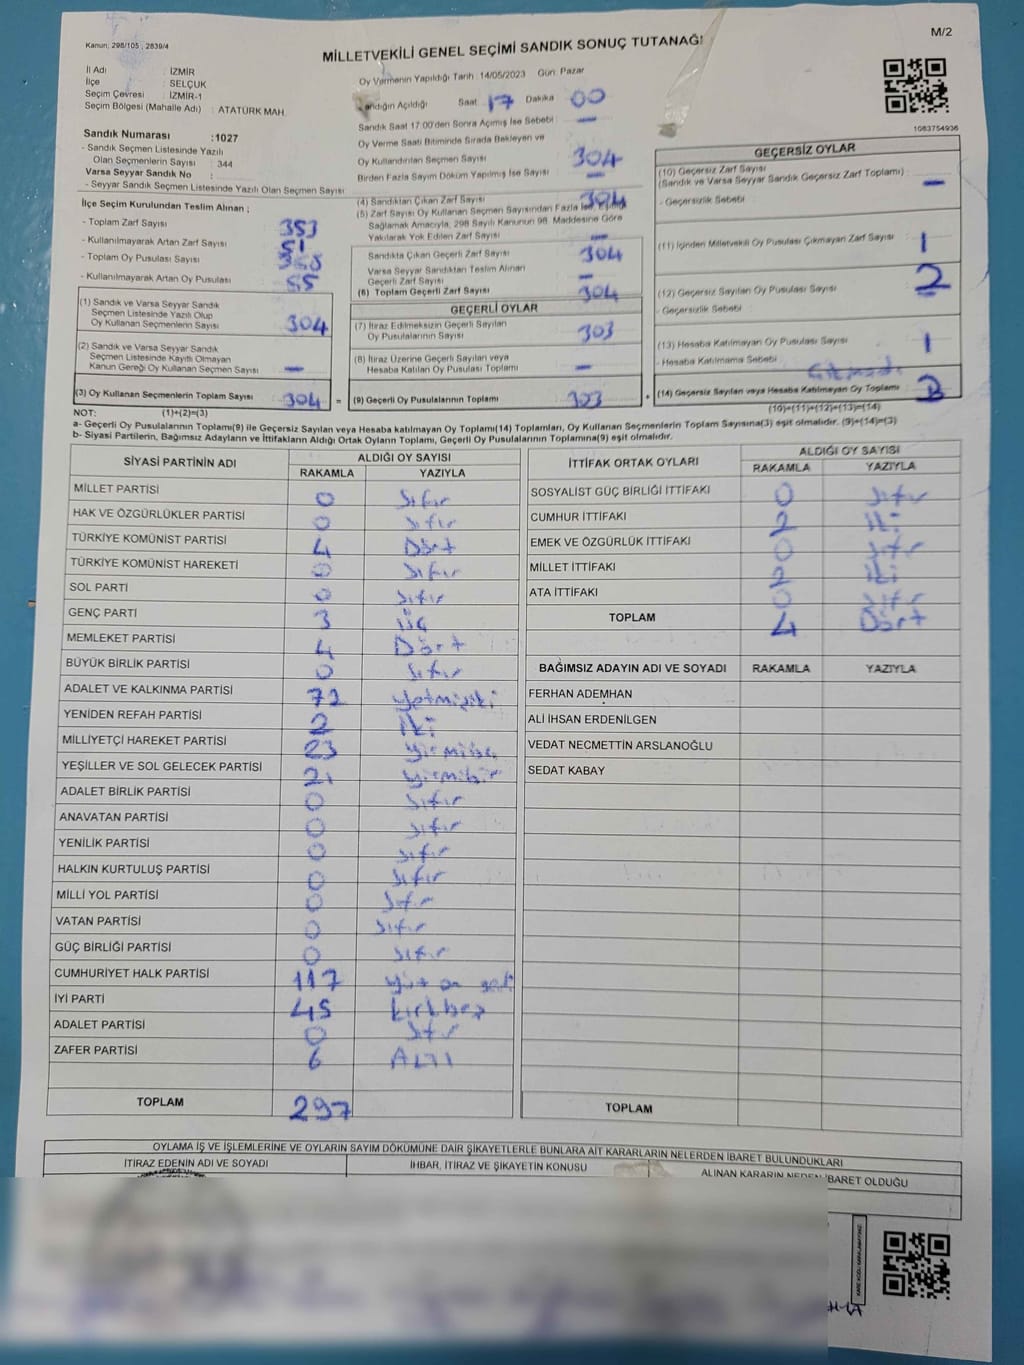 Kanun: 298/105 , 2839/4
M/2
MİLLETVEKİLİ GENEL SEÇİMİ SANDIK SONUÇ TUTANAĞI
İl Adı : İZMİR
İlçe : SELÇUK
Seçim Çevresi : İZMİR-1
Seçim Bölgesi (Mahalle Adı) : ATATÜRK MAH.
Oy Vermenin Yapıldığı Tarih : 14/05/2023 Gün: Pazar
Sandığın Açıldığı Saat 17 Dakika 00
Sandık Saat 17:00'den Sonra Açımış İse Sebebi -
1083754936
Sandık Numarası : 1027
- Sandık Seçmen Listesinde Yazılı
Olan Seçmenlerin Sayısı : 344
Varsa Seyyar Sandık No :
- Seyyar Sandık Seçmen Listesinde Yazılı Olan Seçmen Sayısı
Oy Verme Saati Bitiminde Sırada Bekleyen ve
Oy Kullandırılan Seçmen Sayısı 304
Birden Fazla Sayım Döküm Yapılmış İse Sayısı -
İlçe Seçim Kurulundan Teslim Alınan ;
- Toplam Zarf Sayısı 353
- Kullanılmayarak Artan Zarf Sayısı 51
- Toplam Oy Pusulası Sayısı
- Kullanılmayarak Artan Oy Pusulası 55
(1) Sandık ve Varsa Seyyar Sandık
Seçmen Listesinde Yazılı Olup
Oy Kullanan Seçmenlerin Sayısı 304
(2) Sandık ve Varsa Seyyar Sandık
Seçmen Listesinde Kayıtlı Olmayan
Kanun Gereği Oy Kullanan Seçmen Sayısı -
(3) Oy Kullanan Seçmenlerin Toplam Sayısı 304 =
(4) Sandıktan Çıkan Zarf Sayısı 304
(5) Zarf Sayısı Oy Kullanan Seçmen Sayısından Fazla İse, Eşitliği
Sağlamak Amacıyla, 298 Sayılı Kanunun 98. Maddesine Göre
Yakılarak Yok Edilen Zarf Sayısı -
Sandıkta Çıkan Geçerli Zarf Sayısı 304
Varsa Seyyar Sandıktan Teslim Alınan
Geçerli Zarf Sayısı -
(6) Toplam Geçerli Zarf Sayısı 304
GEÇERLİ OYLAR
(7) İtiraz Edilmeksizin Geçerli Sayılan
Oy Pusulalarının Sayısı 303
(8) İtiraz Üzerine Geçerli Sayılan veya
Hesaba Katılan Oy Pusulası Toplamı -
(9) Geçerli Oy Pusulalarının Toplamı 303 +
GEÇERSİZ OYLAR
(10) Geçersiz Zarf Sayısı
(Sandık ve Varsa Seyyar Sandık Geçersiz Zarf Toplamı) : -
- Geçersizlik Sebebi
(11) İçinden Milletvekili Oy Pusulası Çıkmayan Zarf Sayısı 1
(12) Geçersiz Sayılan Oy Pusulası Sayısı 2
- Geçersizlik Sebebi
(13) Hesaba Katılmayan Oy Pusulası Sayısı 1
- Hesaba Katılmama Sebebi
(14) Geçersiz Sayılan veya Hesaba Katılmayan Oy Toplamı
(10)+(11)+(12)+(13)=(14)
NOT: (1)+(2)=(3)
a- Geçerli Oy Pusulalarının Toplamı(9) ile Geçersiz Sayılan veya Hesaba katılmayan Oy Toplamı(14) Toplamları, Oy Kullanan Seçmenlerin Toplam Sayısına(3) eşit olmalıdır. (9)+(14)=(3)
b- Siyasi Partilerin, Bağımsız Adayların ve İttifakların Aldığı Ortak Oyların Toplamı, Geçerli Oy Pusulalarının Toplamına(9) eşit olmalıdır.
SİYASİ PARTİNİN ADI ALDIĞI OY SAYISI
RAKAMLA YAZIYLA
MİLLET PARTİSİ 0 Sıfır
HAK VE ÖZGÜRLÜKLER PARTİSİ 0 Sıfır
TÜRKİYE KOMÜNİST PARTİSİ 4 Dört
TÜRKİYE KOMÜNİST HAREKETİ 0 Sıfır
SOL PARTİ 0 Sıfır
GENÇ PARTİ 3 Üç
MEMLEKET PARTİSİ 4 Dört
BÜYÜK BİRLİK PARTİSİ 0 Sıfır
ADALET VE KALKINMA PARTİSİ 72 yetmişiki
YENİDEN REFAH PARTİSİ 2 İki
MİLLİYETÇİ HAREKET PARTİSİ 23 Yirmiüç
YEŞİLLER VE SOL GELECEK PARTİSİ 21 Yirmibir
ADALET BİRLİK PARTİSİ 0 Sıfır
ANAVATAN PARTİSİ 0 Sıfır
YENİLİK PARTİSİ 0 Sıfır
HALKIN KURTULUŞ PARTİSİ 0 Sıfır
MİLLİ YOL PARTİSİ 0 Sıfır
VATAN PARTİSİ 0 Sıfır
GÜÇ BİRLİĞİ PARTİSİ 0 Sıfır
CUMHURİYET HALK PARTİSİ 117 Yüz on yedi
İYİ PARTİ 45 Kırkbeş
ADALET PARTİSİ 0 Sıfır
ZAFER PARTİSİ 6 ALTI
TOPLAM 297
İTTİFAK ORTAK OYLARI ALDIĞI OY SAYISI
RAKAMLA YAZIYLA
SOSYALİST GÜÇ BİRLİĞİ İTTİFAKI 0 Sıfır
CUMHUR İTTİFAKI 2 İki
EMEK VE ÖZGÜRLÜK İTTİFAKI 0 Sıfır
MİLLET İTTİFAKI 2 İki
ATA İTTİFAKI 0 Sıfır
TOPLAM 4 Dört
BAĞIMSIZ ADAYIN ADI VE SOYADI RAKAMLA YAZIYLA
FERHAN ADEMHAN
ALİ İHSAN ERDENİLGEN
VEDAT NECMETTİN ARSLANOĞLU
SEDAT KABAY
TOPLAM
OYLAMA İŞ VE İŞLEMLERİNE VE OYLARIN SAYIM DÖKÜMÜNE DAİR ŞİKAYETLERLE BUNLARA AİT KARARLARIN NELERDEN İBARET BULUNDUKLARI
İTİRAZ EDENİN ADI VE SOYADI İHBAR, İTİRAZ VE ŞİKAYETİN KONUSU ALINAN KARARIN NEDEN İBARET OLDUĞU